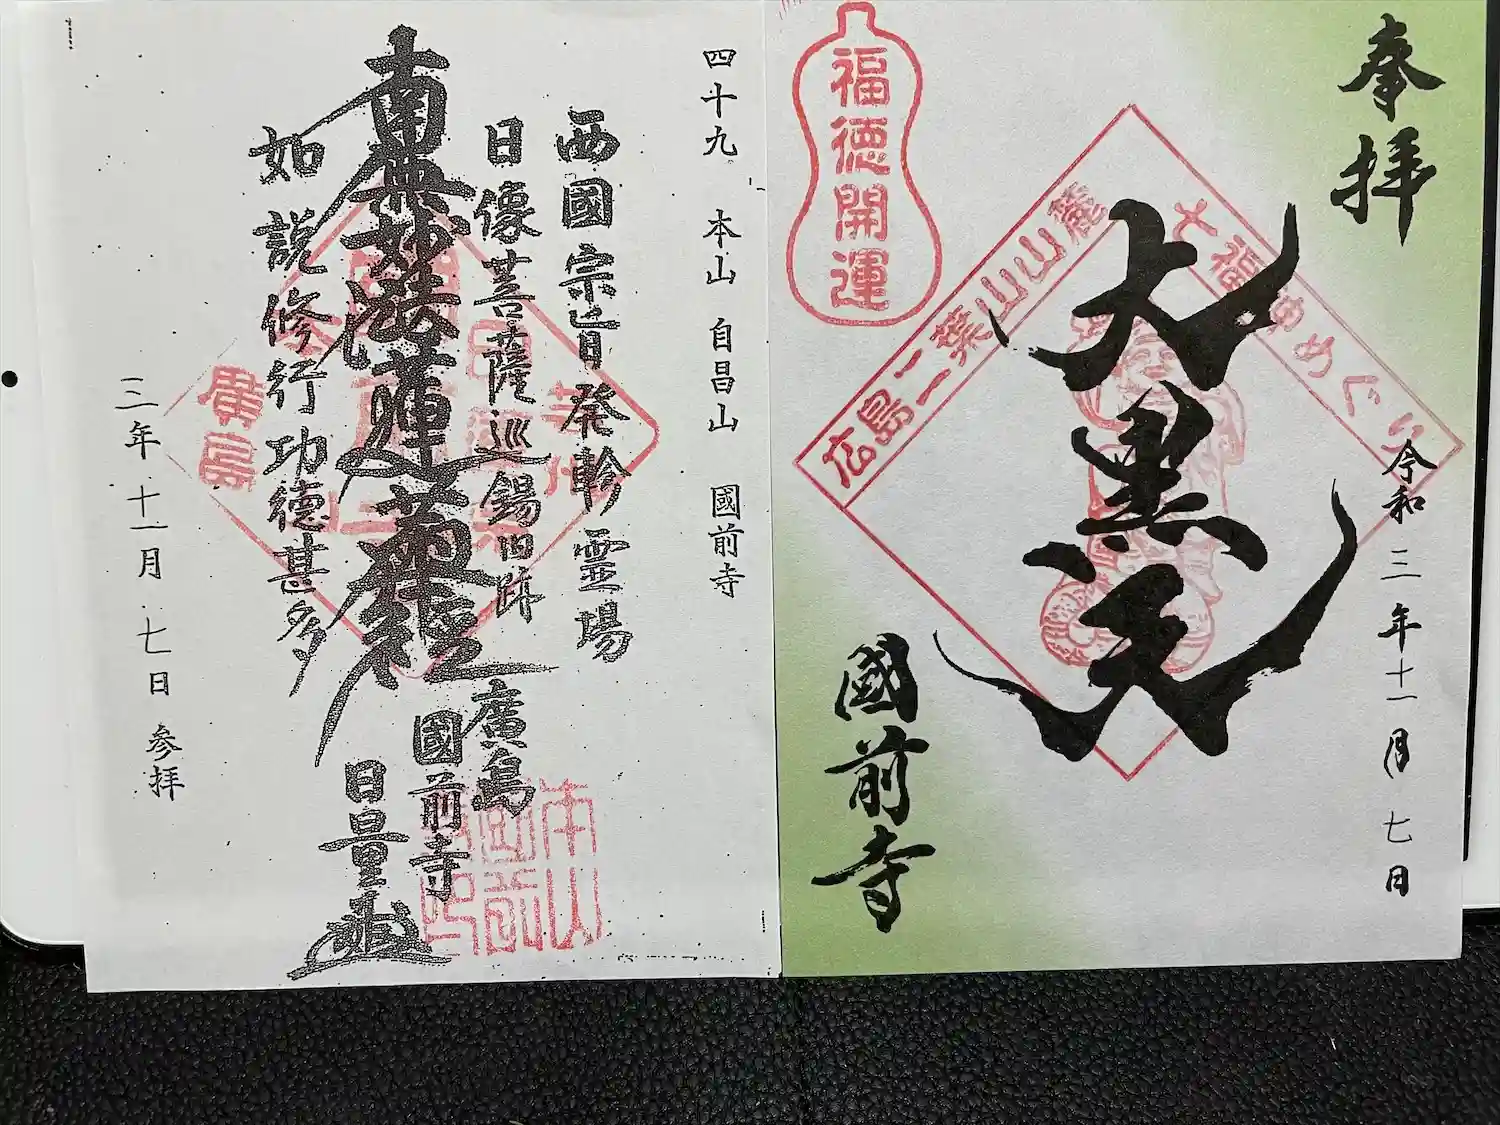 奉拝
大黒天
令和三年十一月七日
國前寺
福徳開運
広島二葉山山麓
七福神めぐり
四十九 本山 自昌山 國前寺
西國宗旨発軫霊場
日像菩薩巡錫旧跡
廣島
國前寺
南無妙法蓮華経
日量
如説修行功徳甚多
三年十一月七日参拝
廣島
本山國前